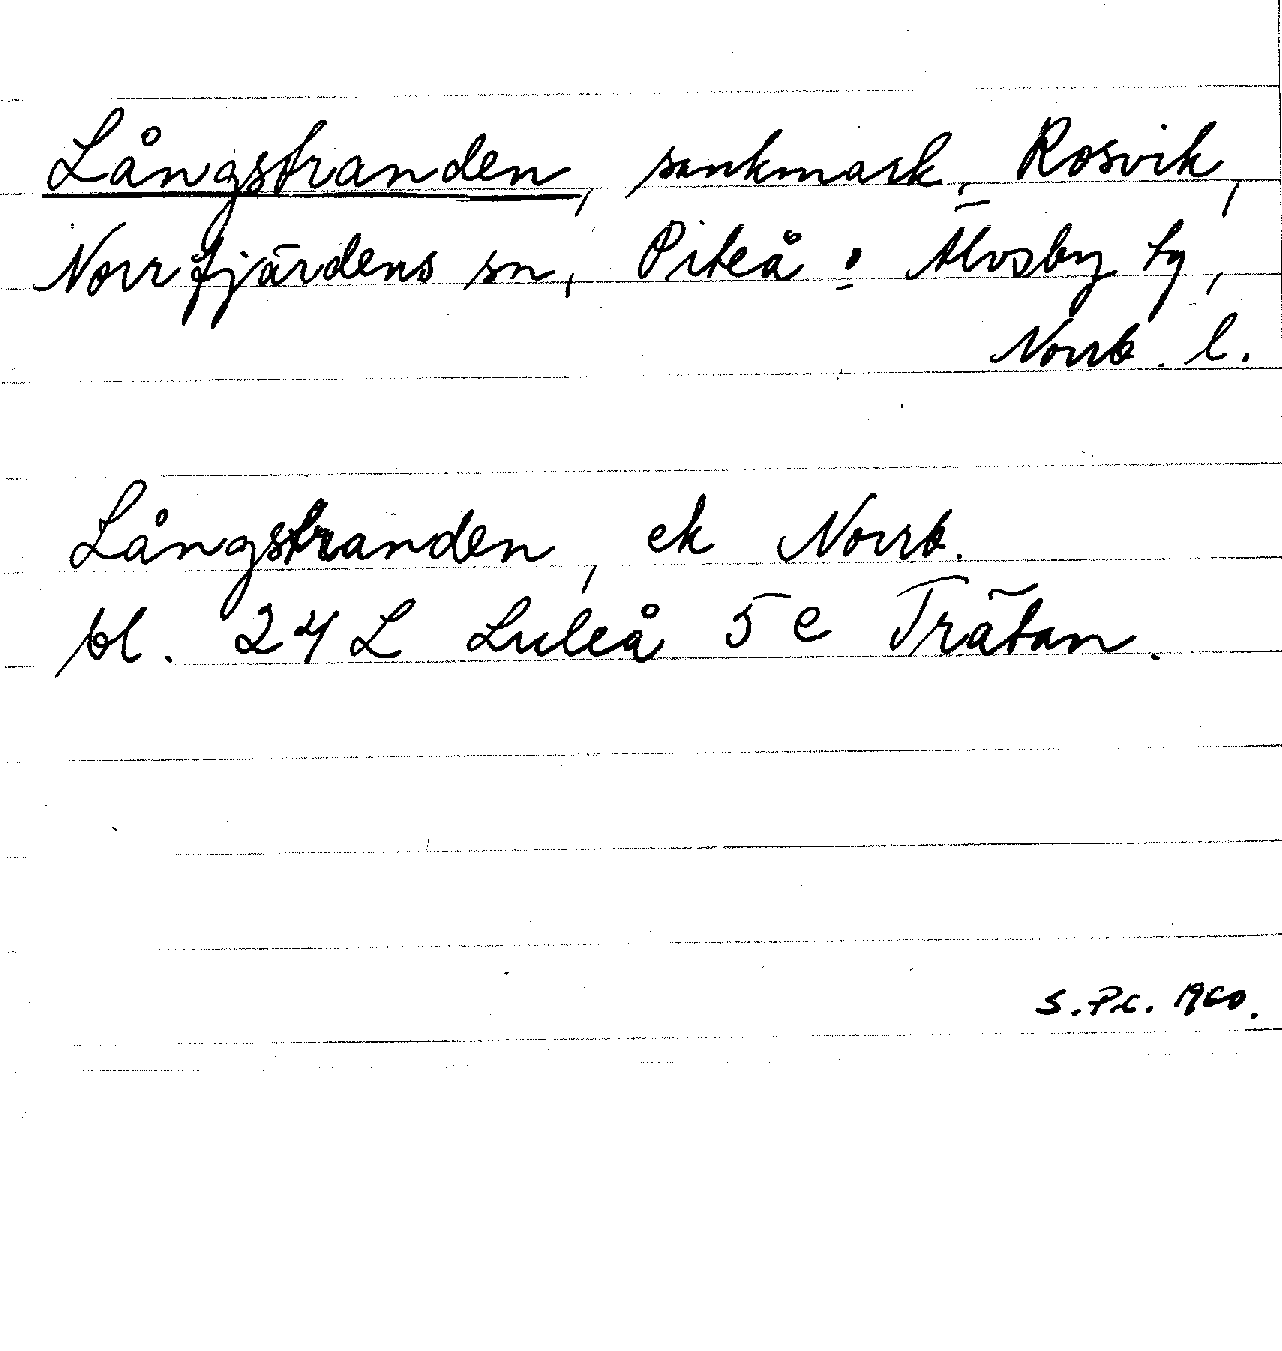 Långstranden, sankmark, Rosvik,
Norrfjärdens sn, Piteå o Älvsby tg,
Norrb. l.
Långstranden, ek Norrb.
bl. 24 L Luleå 5 e Trätan.
S.Pl. 1960.